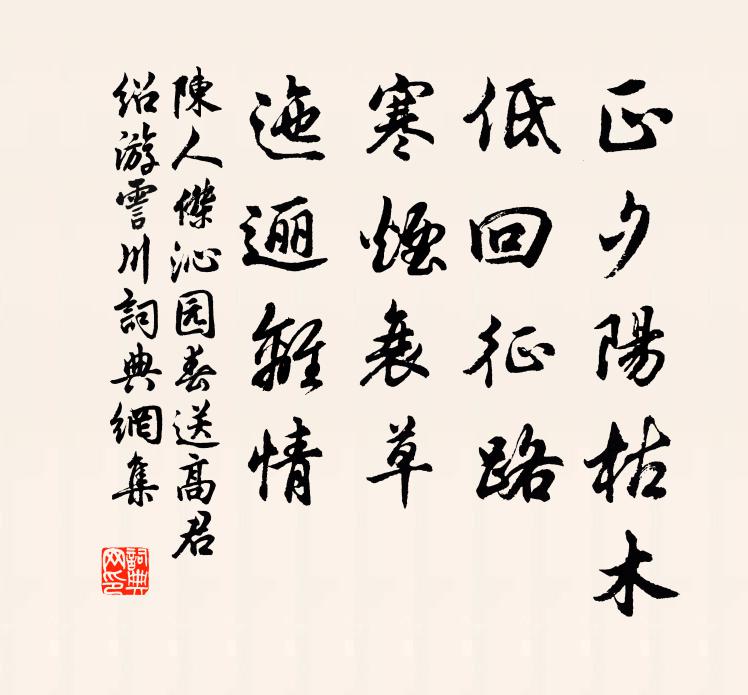 正夕陽枯木
低回征路
寒煙衰草
迤邐離情
陳人傑沁园春送高君
绍游霅川詞典網集
詞典网印